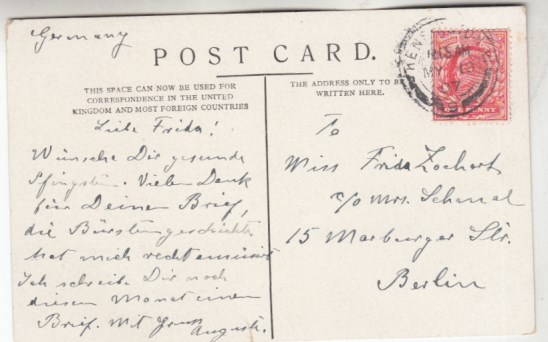 Germany
POST CARD.
THIS SPACE CAN NOW BE USED FOR
CORRESPONDENCE IN THE UNITED
KINGDOM AND MOST FOREIGN COUNTRIES
THE ADDRESS ONLY TO BE
WRITTEN HERE.
Liebe Frida!
Wünsche Dir gesunde
Pfingsten. Vielen Dank
für Deinen Brief,
die Bürstengeschichte
hat mich recht amüsirt
Ich schreibe Dir noch
diesen Monat einen
Brief. Mit Gruss
August.
To
Miss Frida
c/o Mrs.
15 Marburger Str.
Berlin
ONE PENNY